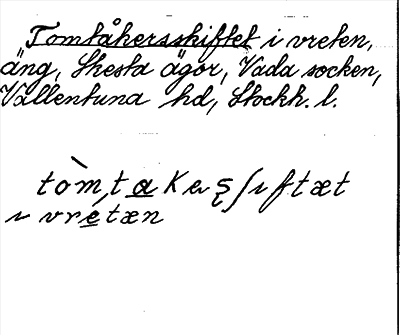 Tomtåkersskiftet i vreten,
äng, Skesta ägor, Vada socken,
Vallentuna hd, Stockh. l.
tòm,takeʂʃiftæt
i vretæn